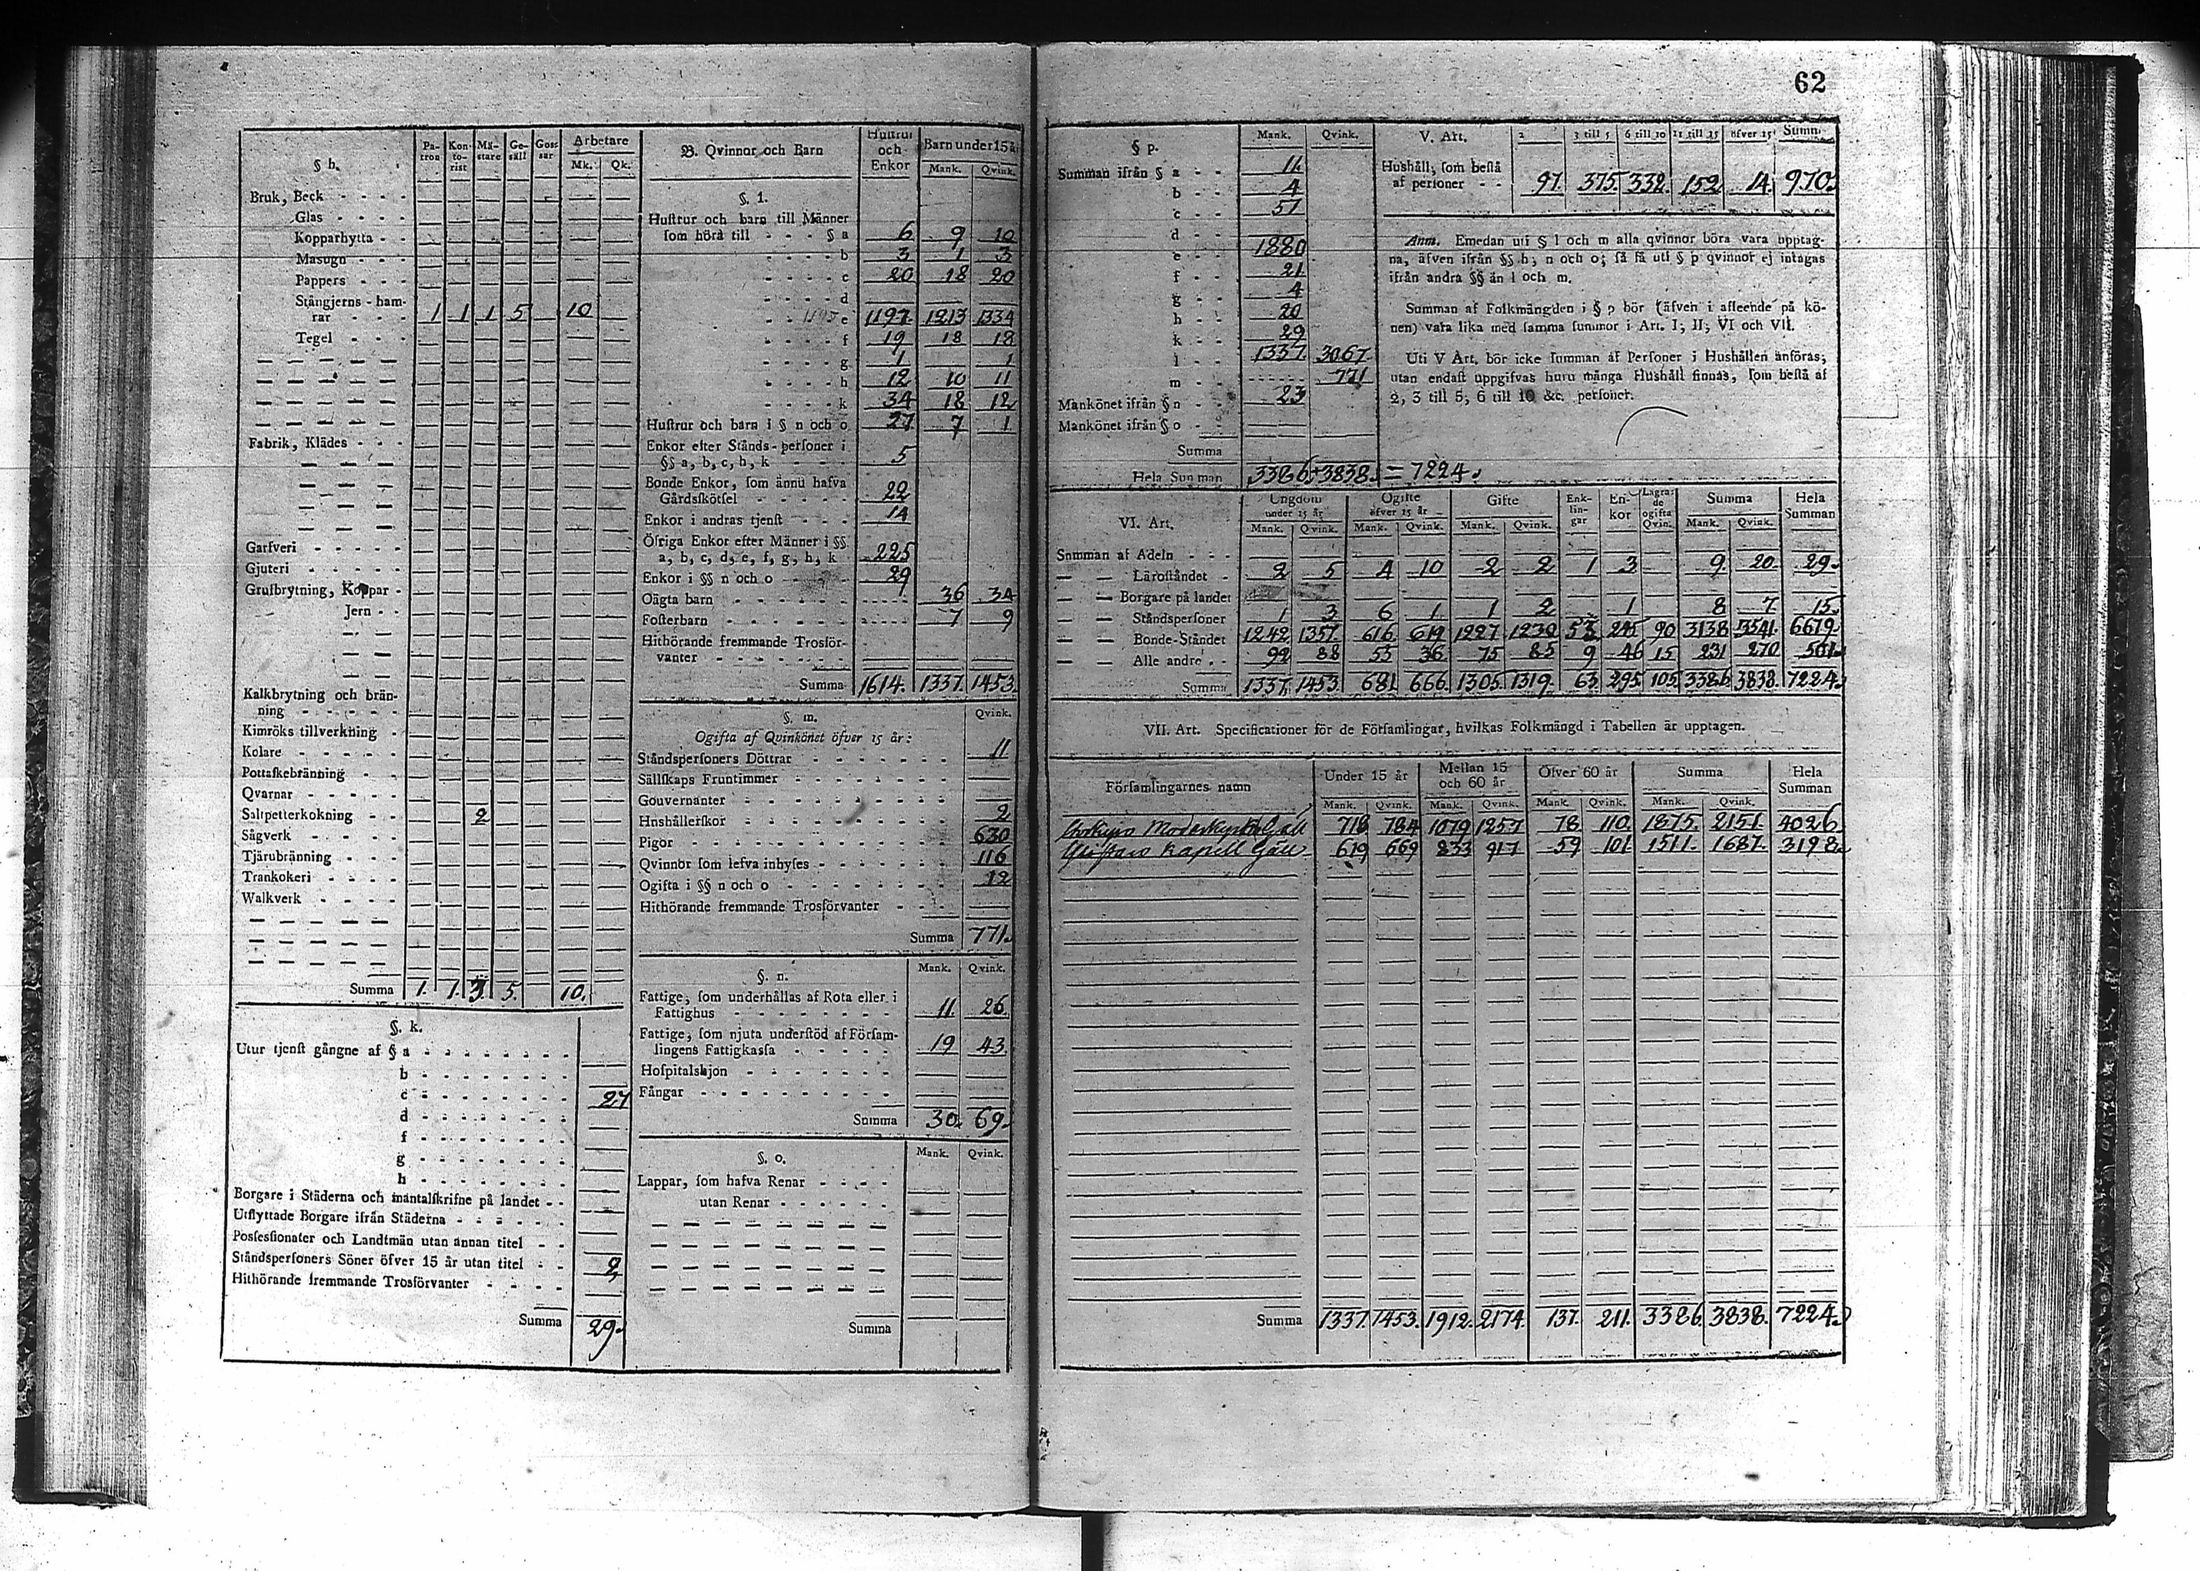 62
§ h.
Pa-
tron
Kon-
to-
rist
Mä-
stare
Ge-
säll
Gos-
sar
Arbetare
Mk. Qk.
Bruk, Beck - - - -
Glas - - - -
Kopparhytta - -
Masugn - - - -
Pappers - - - -
Stångjerns-ham-
rar - - - 1 1 1 5 10
Tegel - - - -
Fabrik, Klädes - - -
Garfveri - - - - -
Gjuteri - - - - -
Grufbrytning, Koppar -
Jern - -
Kalkbrytning och brän-
ning - - - - -
Kimröks tillverkning -
Kolare - - - - -
Pottaskebränning - -
Qvarnar - - - - -
Saltpetterkokning - - 2
Sågverk - - - - -
Tjärubränning - - -
Trankokeri - - - -
Walkverk - - - -
Summa 1. 1. 3. 5. 10.
§. k.
Utur tjenst gångne af § a - - - - - - -
b - - - - - - -
c - - - - - - - 27
d - - - - - - -
f - - - - - - -
g - - - - - - -
h - - - - - - -
Borgare i Städerna och mantalskrifne på landet - -
Utflyttade Borgare ifrån Städerna - - - - -
Possessionater och Landtmän utan annan titel - -
Ståndspersoners Söner öfver 15 år utan titel - - 2
Hithörande fremmande Trosförvanter - - - -
Summa 29.
B. Qvinnor och Barn
Hustrur
och
Enkor
Barn under 15 år
Mank. Qvink.
§. l.
Hustrur och barn till Männer
som höra till - - - § a 6 9 10
- - - - b 3 1 3
- - - - c 20 18 20
- - - - d
- - e 1197. 1213 1334
- - - - f 19 18 18
- - - - g 1 1
- - - - h 12 10 11
- - - - k 34 18 12
Hustrur och barn i § n och o 27 7 1
Enkor efter Stånds-personer i
§§ a, b, c, h, k - - - 5
Bonde Enkor, som ännu hafva
Gårdsskötsel - - - - - 22
Enkor i andras tjenst - - - 14
Öfriga Enkor efter Männer i §§
a, b, c, d, e, f, g, h, k 225
Enkor i §§ n och o - - - 29
Oägta barn - - - - - - 36 34
Fosterbarn - - - - - - 7 9
Hithörande fremmande Trosför-
vanter - - - - - -
Summa 1614. 1337. 1453.
§. m. Qvink.
Ogifta af Qvinkönet öfver 15 år:
Ståndspersoners Döttrar - - - - - - 11
Sällskaps Fruntimmer - - - - - -
Gouvernanter - - - - - - - -
Hushållerskor - - - - - - - - 2
Pigor - - - - - - - - - 630
Qvinnor som lefva inhyses - - - - - 116
Ogifta i §§ n och o - - - - - - 12
Hithörande fremmande Trosförvanter - - -
Summa 771.
§. n. Mank. Qvink.
Fattige, som underhållas af Rota eller i
Fattighus - - - - - - - 11. 26
Fattige, som njuta understöd af Försam-
lingens Fattigkassa - - - - - 19 43.
Hospitalshjon - - - - - - -
Fångar - - - - - - - - -
Summa 30. 69.
§. o. Mank. Qvink.
Lappar, som hafva Renar - - - -
utan Renar - - - - -
Summa
§ p. Mank. Qvink.
Summan ifrån § a - - 11.
b - - 4
c - - 51
d - -
e - - 1880
f - - 21
g - - 4
h - - 20
k - - 29
l - - 1337. 3067.
m - - 771
Mankönet ifrån § n - 23
Mankönet ifrån § o -
Summa
Hela Summan 3386. + 3838. = 7224.
V. Art. 2 3 till 5 6 till 10 11 till 15 öfver 15 Summa
Hushåll, som bestå
af personer - - 97. 375. 332. 152 14. 970.
Anm. Emedan uti § l och m alla qvinnor böra vara upptag-
na, äfven ifrån §§ h, n och o; så få uti § p qvinnor ej intagas
ifrån andra §§ än l och m.
Summan af Folkmängden i § p bör (äfven i afseende på kö-
nen) vara lika med samma summor i Art. I, II, VI och VII.
Uti V Art. bör icke summan af Personer i Hushållen anföras,
utan endast uppgifvas huru många Hushåll finnas, som bestå af
2, 3 till 5, 6 till 10 &c. personer.
VI. Art.
Ungdom
under 15 år
Mank. Qvink.
Ogifte
öfver 15 år
Mank. Qvink.
Gifte
Mank. Qvink.
Enk-
lin-
gar
En-
kor
Lägra-
de
ogifta
Qvin.
Summa
Mank. Qvink.
Hela
Summan
Summan af Adeln - - -
— — Läroståndet - 2 5 4 10 2 2 1 3 9 20 29.
— — Borgare på landet
— — Ståndspersoner 1 3 6 1 1 2 1 8 7 15.
— — Bonde-Ståndet 1242. 1357. 616 619 1227 1230 53 245 90 3138 3541. 6679.
— — Alle andre - - 92 88 55 36 75 85 9 46 15 231 270 501.
Summa 1337. 1453. 681. 666. 1305. 1319. 63. 295. 105. 3386. 3838. 7224.
VII. Art. Specificationer för de Församlingar, hvilkas Folkmängd i Tabellen är upptagen.
Församlingarnes namn
Under 15 år
Mank. Qvink.
Mellan 15
och 60 år
Mank. Qvink.
Öfver 60 år
Mank. Qvink.
Summa
Mank. Qvink.
Hela
Summan
718 784 1079 1257 78 110. 1875. 2151. 4026
Kapell 619 669 833 917 59 101. 1511. 1687. 3198.
Summa 1337. 1453. 1912. 2174. 137. 211. 3386. 3838. 7224.